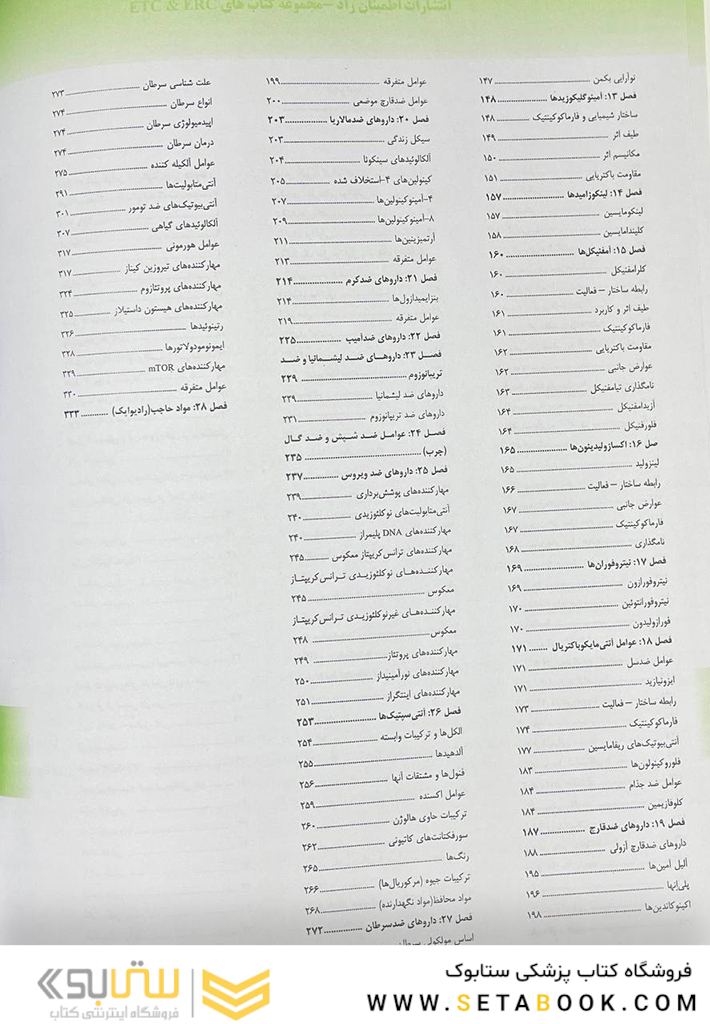 انتشارات اطمینان راد - مجموعه کتاب های ETC & ERC
نوآرایی بکمن ۱۴۷
فصل ۱۳: آمینوگلیکوزیدها ۱۴۸
ساختار شیمیایی و فارماکوکینتیک ۱۴۸
طیف اثر ۱۴۹
مکانیسم اثر ۱۵۰
مقاومت باکتریایی ۱۵۱
فصل ۱۴: لینکوزامیدها ۱۵۷
لینکومایسین ۱۵۷
کلیندامایسین ۱۵۸
فصل ۱۵: آمفنیکل‌ها ۱۶۰
کلرامفنیکل ۱۶۰
رابطه ساختار – فعالیت ۱۶۰
طیف اثر و کاربرد ۱۶۱
فارماکوکینتیک ۱۶۱
مقاومت باکتریایی ۱۶۲
عوارض جانبی ۱۶۲
نامگذاری تیامفنیکل ۱۶۳
آزیدامفنیکل ۱۶۴
فلورفنیکل ۱۶۴
صل ۱۶: اکسازولیدینون‌ها ۱۶۵
لینزولید ۱۶۵
رابطه ساختار – فعالیت ۱۶۶
عوارض جانبی ۱۶۷
فارماکوکینتیک ۱۶۷
نامگذاری ۱۶۸
فصل ۱۷: نیتروفوران‌ها ۱۶۹
نیتروفورازون ۱۶۹
نیتروفورانتوئین ۱۷۰
فورازولیدون ۱۷۰
فصل ۱۸: عوامل آنتی‌مایکوباکتریال ۱۷۱
عوامل ضدسل ۱۷۱
ایزونیازید ۱۷۱
رابطه ساختار – فعالیت ۱۷۳
فارماکوکینتیک ۱۷۴
آنتی‌بیوتیک‌های ریفامایسین ۱۷۷
فلوروکینولون‌ها ۱۸۳
عوامل ضد جذام ۱۸۴
کلوفازیمین ۱۸۴
فصل ۱۹: داروهای ضدقارچ ۱۸۷
داروهای ضدقارچ آزولی ۱۸۸
آلیل آمین‌ها ۱۹۵
پلی‌ان‍ها ۱۹۶
اکینوکاندین‌ها ۱۹۸
عوامل متفرقه ۱۹۹
عوامل ضدقارچ موضعی ۲۰۰
فصل ۲۰: داروهای ضدمالاریا ۲۰۳
سیکل زندگی ۲۰۳
آلکالوئیدهای سینکونا ۲۰۴
کینولین‌های ۴-استخلاف شده ۲۰۵
۴-آمینوکینولین‌ها ۲۰۷
۸-آمینوکینولین‌ها ۲۰۹
آرتمیزینین‌ها ۲۱۱
عوامل متفرقه ۲۱۳
فصل ۲۱: داروهای ضدکرم ۲۱۴
بنزایمیدازول‌ها ۲۱۴
عوامل متفرقه ۲۱۹
فصل ۲۲: داروهای ضدآمیب ۲۲۵
فصل ۲۳: داروهای ضد لیشمانیا و ضد
تریپانوزوم ۲۲۹
داروهای ضد لیشمانیا ۲۲۹
داروهای ضد تریپانوزوم ۲۳۱
فصل ۲۴: عوامل ضد شپش و ضد گال
(جرب) ۲۳۵
فصل ۲۵: داروهای ضد ویروس ۲۳۷
مهارکننده‌های پوشش‌برداری ۲۳۹
آنتی‌متابولیت‌های نوکلئوزیدی ۲۴۰
مهارکننده‌های DNA پلیمراز ۲۴۰
مهارکننده‌های ترانس‌کریپتاز معکوس ۲۴۵
مهارکننده‌های نوکلئوزیدی ترانس‌کریپتاز
معکوس ۲۴۵
مهارکننده‌های غیرنوکلئوزیدی ترانس‌کریپتاز
معکوس ۲۴۸
مهارکننده‌های پروتئاز ۲۴۹
مهارکننده‌های نورآمینیداز ۲۵۰
مهارکننده‌های اینتگراز ۲۵۱
فصل ۲۶: آنتی‌سپتیک‌ها ۲۵۳
الکل‌ها و ترکیبات وابسته ۲۵۴
آلدهیدها ۲۵۵
فنول‌ها و مشتقات آنها ۲۵۶
عوامل اکسنده ۲۵۹
ترکیبات حاوی هالوژن ۲۶۰
سورفکتانت‌های کاتیونی ۲۶۲
رنگ‌ها ۲۶۵
ترکیبات جیوه (مرکوریال‌ها) ۲۶۶
مواد محافظ(مواد نگهدارنده) ۲۶۸
فصل ۲۷: داروهای ضدسرطان ۲۷۲
اساس مولکولی سرطان
علت شناسی سرطان ۲۷۳
انواع سرطان ۲۷۴
اپیدمیولوژی سرطان ۲۷۴
درمان سرطان ۲۷۴
عوامل آلکیله کننده ۲۷۵
آنتی‌متابولیت‌ها ۲۹۱
آنتی‌بیوتیک‌های ضد تومور ۳۰۱
آلکالوئیدهای گیاهی ۳۰۷
عوامل هورمونی ۳۱۷
مهارکننده‌های تیروزین کیناز ۳۱۷
مهارکننده‌های پروتئازوم ۳۲۴
مهارکننده‌های هیستون داستیلاز ۳۲۵
رتینوئیدها ۳۲۶
ایمونومودولاتورها ۳۲۸
مهارکننده‌های mTOR ۳۲۹
عوامل متفرقه ۳۳۰
فصل ۲۸: مواد حاجب(رادیواپک) ۳۳۳
فروشگاه کتاب پزشکی ستابوک
WWW.SETABOOK.COM
ستابوک
فروشگاه اینترنتی کتاب